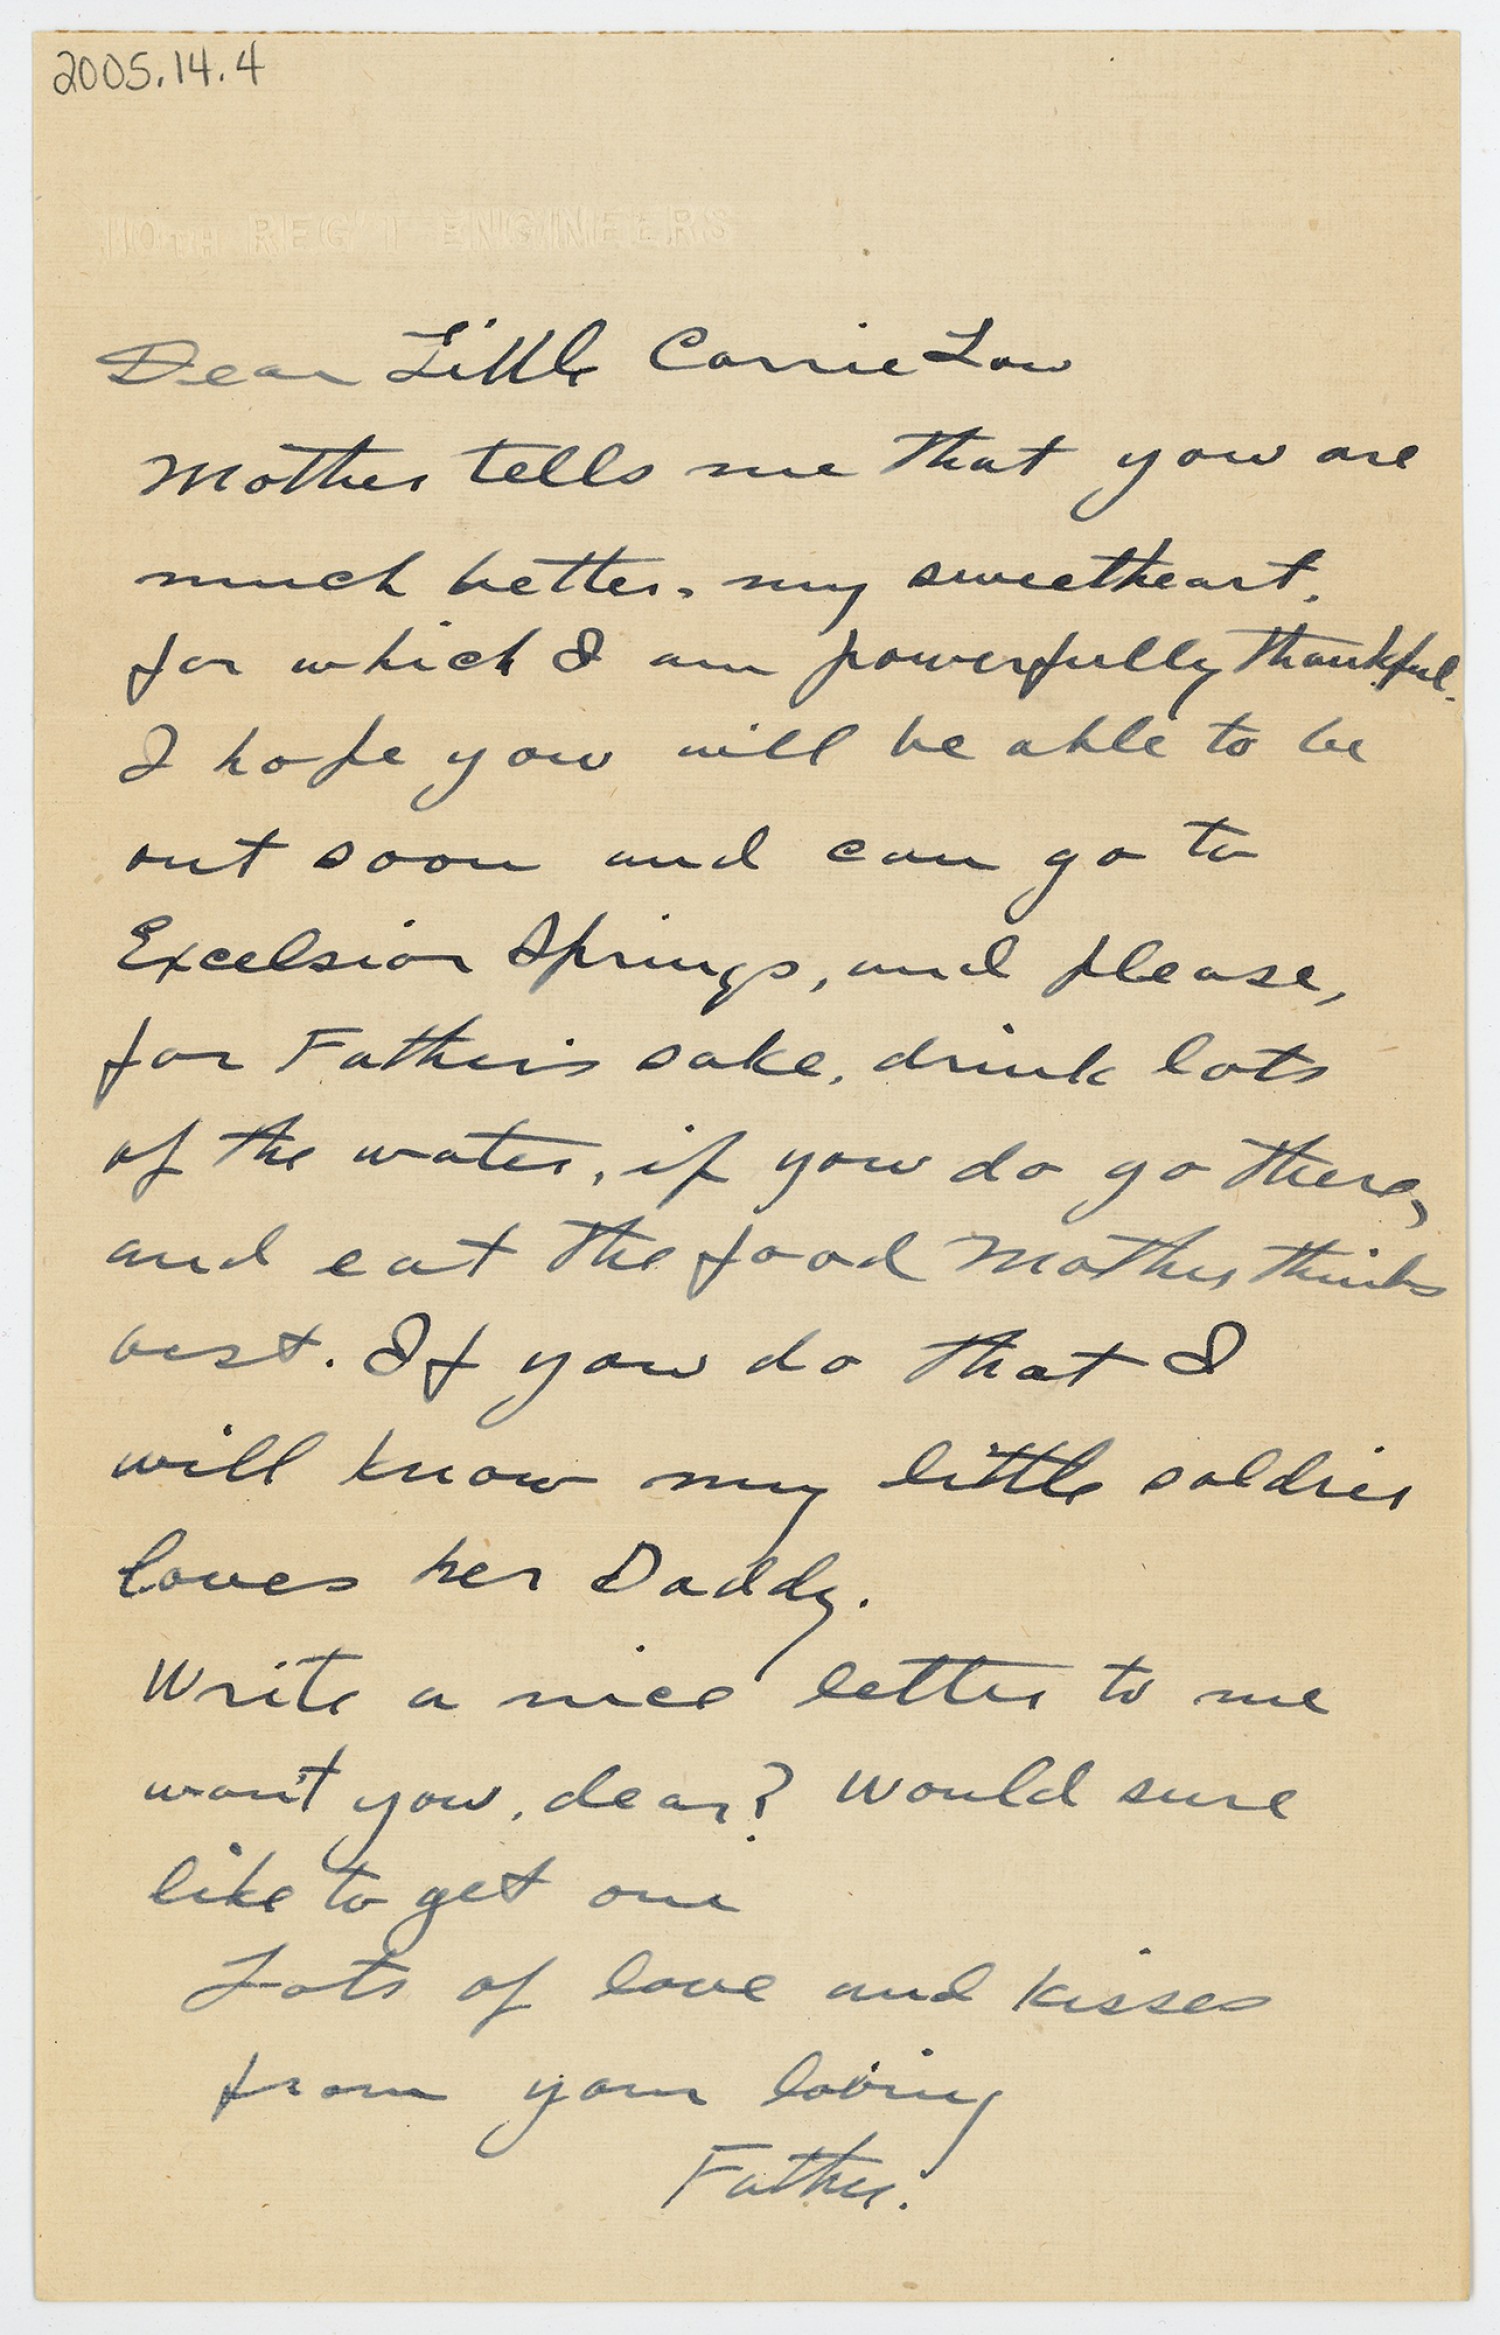 2005.14.4
110TH REG'T ENGINEERS
Dear Little Carrie Lou
Mother tells me that you are
much better, my sweetheart,
for which I am powerfully thankful.
I hope you will be able to be
out soon and can go to
Excelsior Springs, and please,
for Father's sake, drink lots
of the water, if you do go there,
and eat the food Mother thinks
best. If you do that I
will know my little soldier
loves her Daddy.
Write a nice letter to me
won't you, dear? Would sure
like to get one
Lots of love and kisses
from your loving
Father.